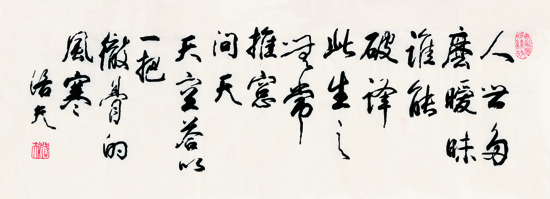 人世多
麼曖昧
誰能
破譯
此生之
無常
推窗
問天
天空答以
一把
徹骨的
風寒
洛夫